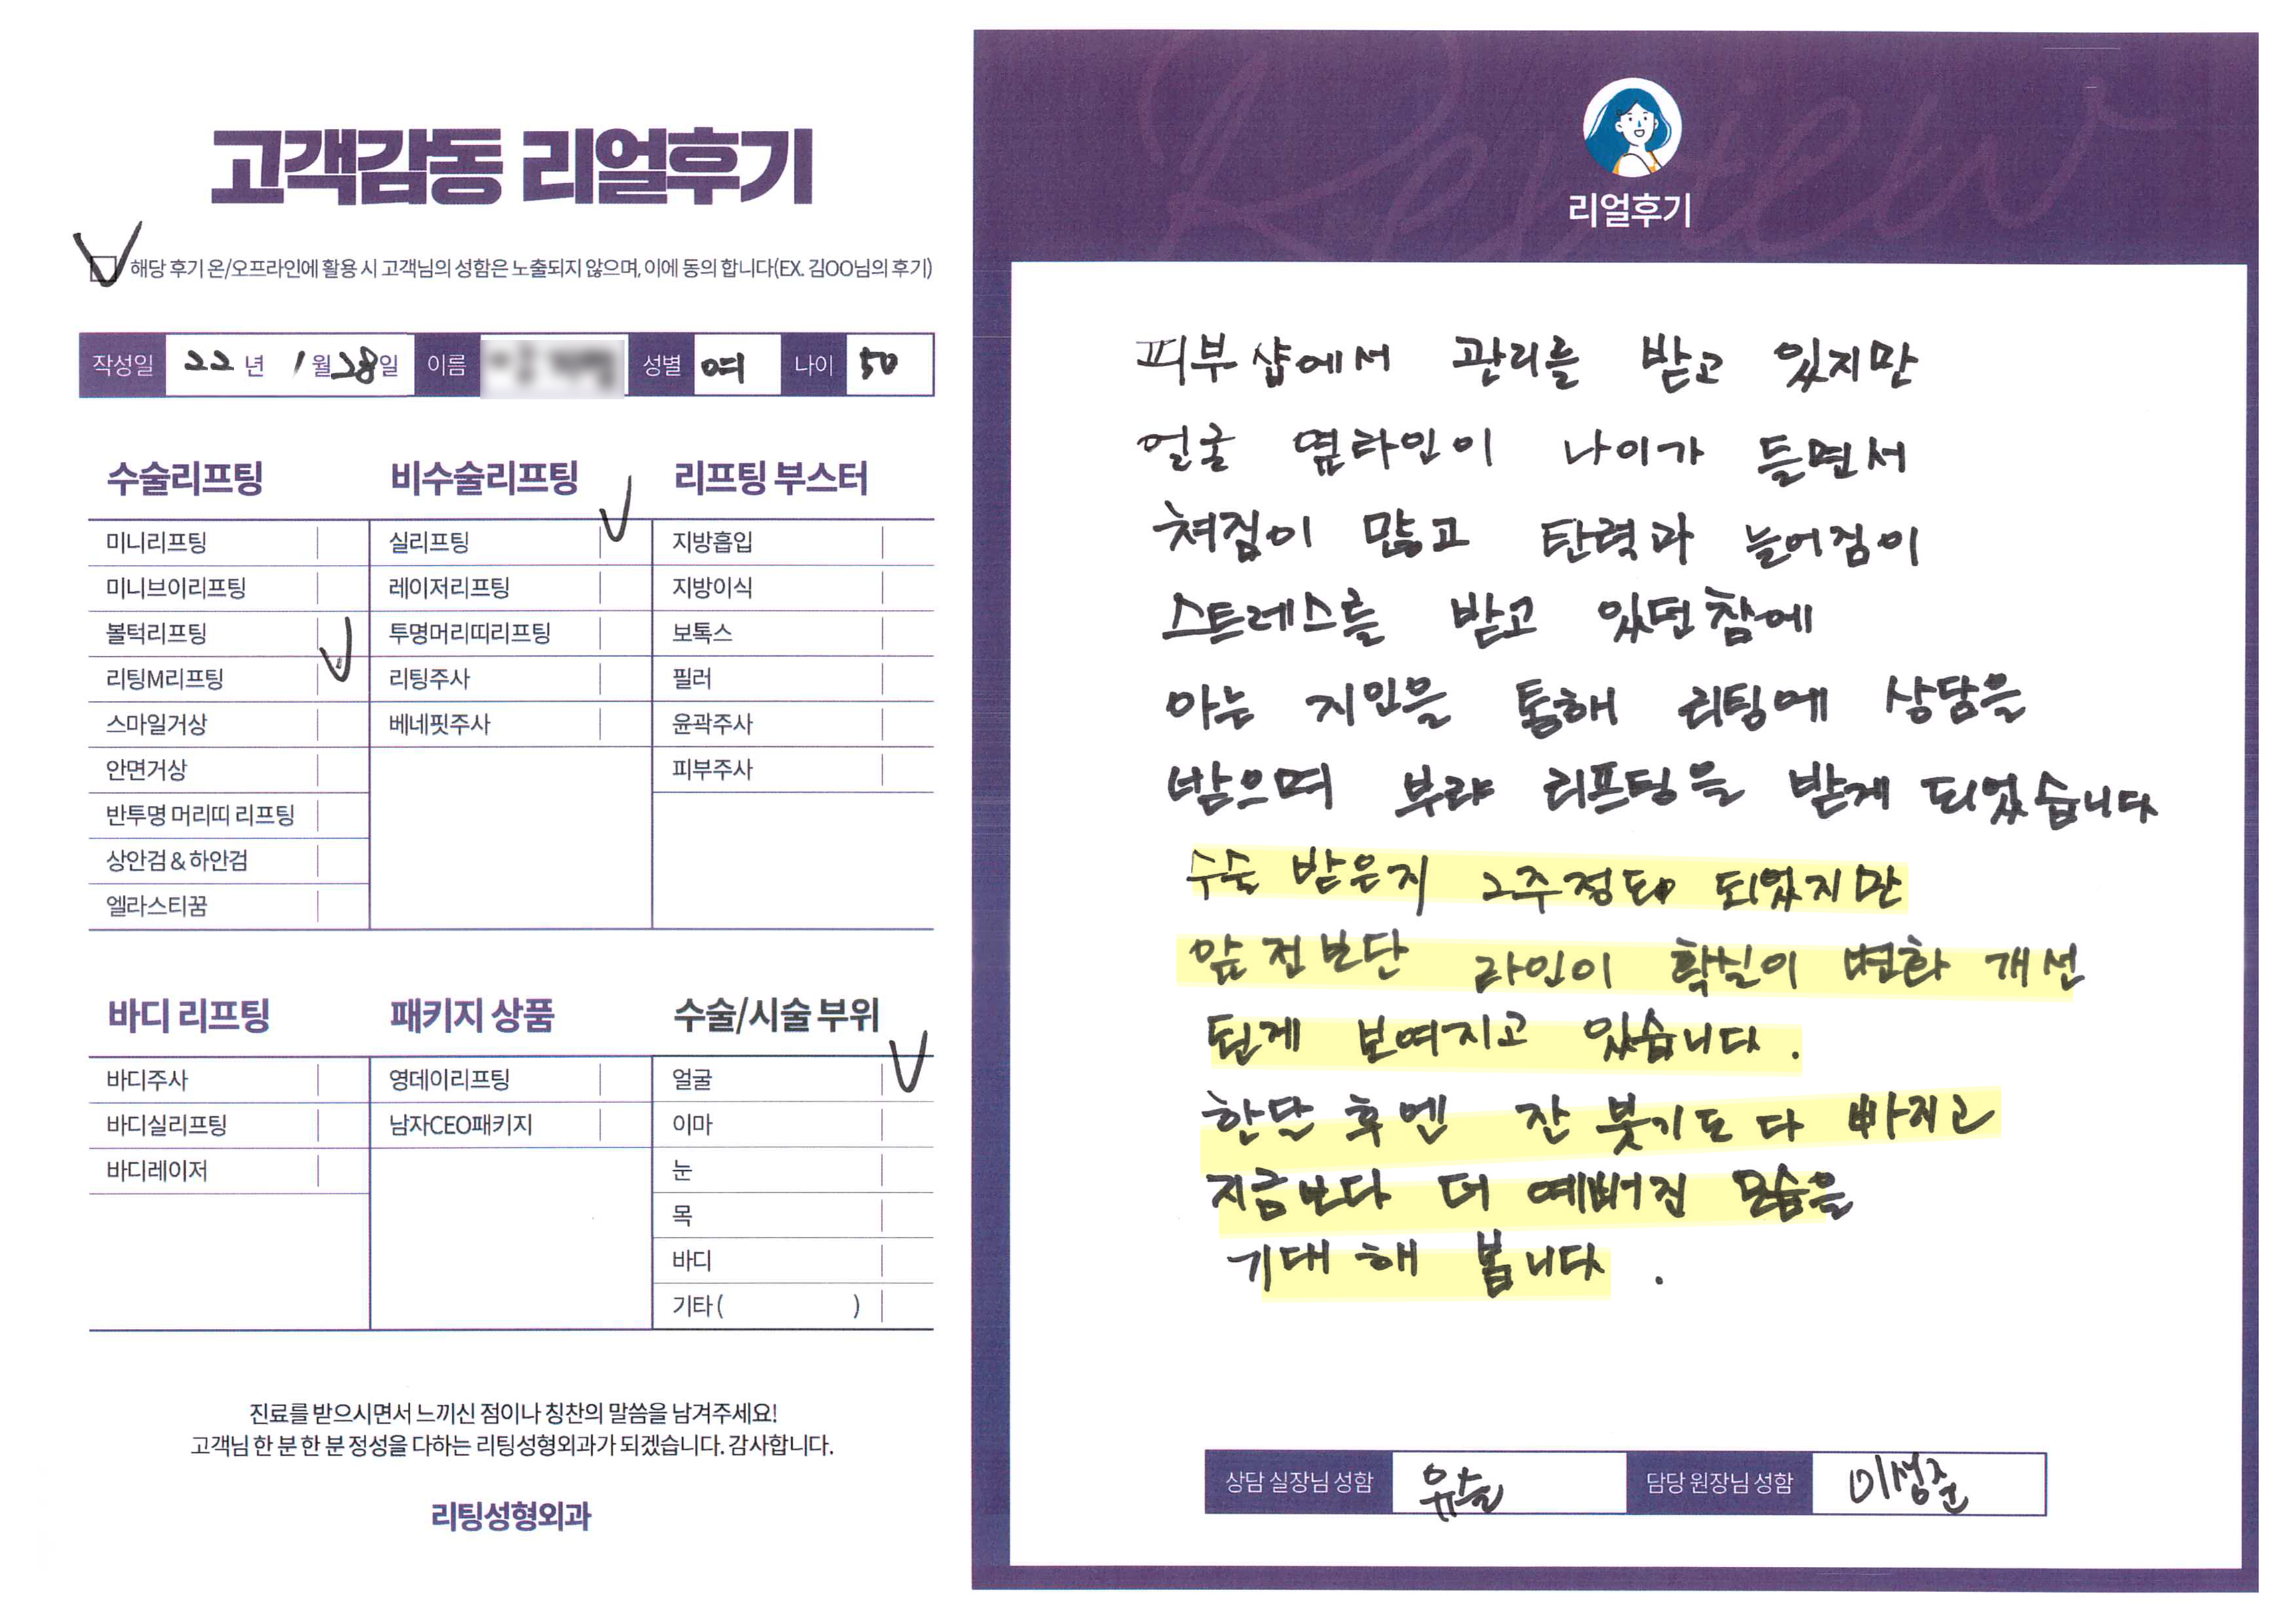 고객감동 리얼후기
해당 후기 온/오프라인에 활용 시 고객님의 성함은 노출되지 않으며, 이에 동의 합니다(EX. 김OO님의 후기)
작성일 22년 1월 28일 이름 성별 여 나이 50
수술리프팅
미니리프팅
미니브이리프팅
볼턱리프팅
리팅M리프팅
스마일거상
안면거상
반투명 머리띠 리프팅
상안검 & 하안검
엘라스티꿈
비수술리프팅
실리프팅
레이저리프팅
투명머리띠리프팅
리팅주사
베네핏주사
리프팅 부스터
지방흡입
지방이식
보톡스
필러
윤곽주사
피부주사
바디 리프팅
바디주사
바디실리프팅
바디레이저
패키지 상품
영데이리프팅
남자CEO패키지
수술/시술 부위
얼굴
이마
눈
목
바디
기타 ( )
진료를 받으시면서 느끼신 점이나 칭찬의 말씀을 남겨주세요!
고객님 한 분 한 분 정성을 다하는 리팅성형외과가 되겠습니다. 감사합니다.
리팅성형외과
Review
리얼후기
피부샵에서 관리를 받고 있지만
얼굴 옆라인이 나이가 들면서
쳐짐이 많고 탄력과 늘어짐이
스트레스를 받고 있던참에
아는 지인을 통해 리팅에 상담을
받으며 리프팅을 받게 되었습니다
수술 받은지 2주정도 되었지만
앞전보단 라인이 확실이 변화 개선
된게 보여지고 있습니다.
한달 후엔 잔 붓기도 다 빠지고
지금보다 더 예뻐진 모습을
기대해 봅니다.
상담 실장님 성함 유슬 담당 원장님 성함 이성준